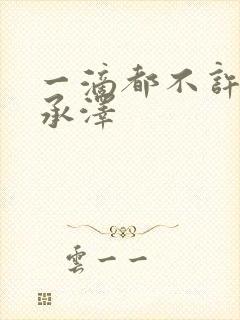 一滴都不許
承澤
雲一一